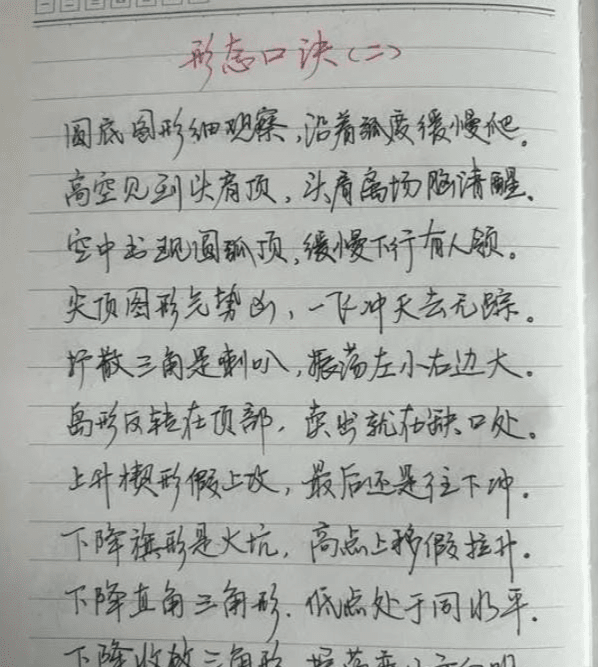 形态口诀(二)
圆底图形细观察,沿着弧度缓慢爬。
高空见到头肩顶,头肩离场脑清醒。
空中出现圆弧顶,缓慢下行有人领。
尖顶图形气势凶,一飞冲天去无踪。
扩散三角是喇叭,振荡左小右边大。
岛形反转在顶部,卖出就在缺口处。
上升楔形假上攻,最后还是往下冲。
下降旗形是大坑,高点上移假拉升。
下降直角三角形.低点处于同水平.
下降收敛三角形